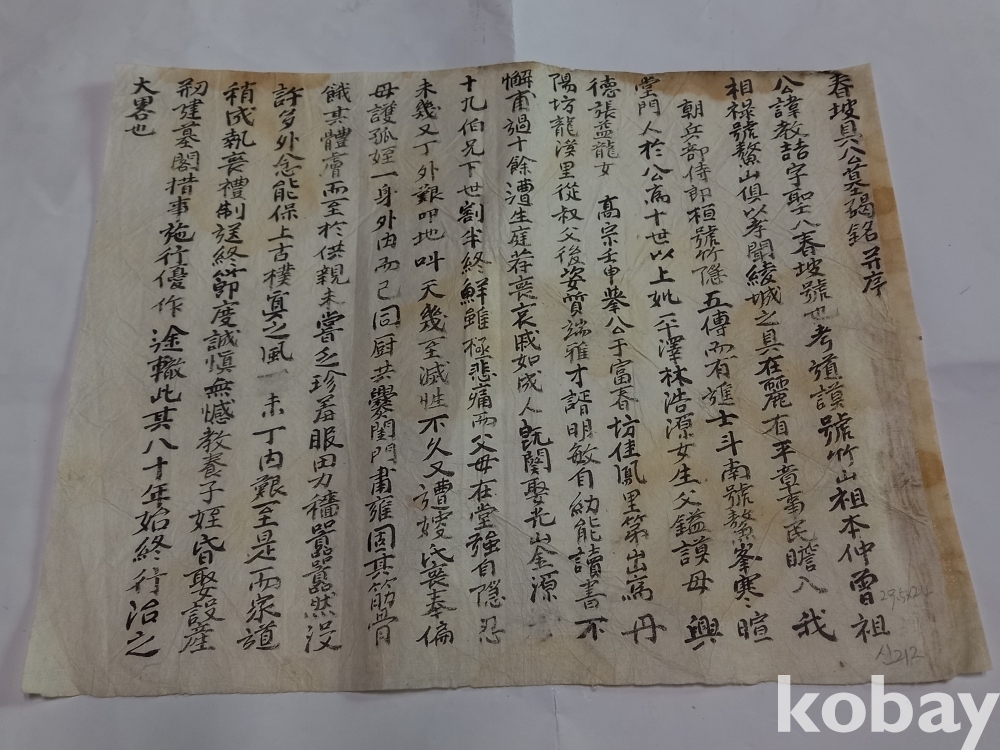 春坡具公墓碣銘并序
公諱教喆字聖八春坡號也考道謨號竹山祖本仲曾祖
相祿號鰲山俱以孝聞綾城之具在麗有平章事民瞻入我
朝兵部侍郎桓號竹隱五傳而有進士斗南號鰲峯寒暄
堂門人於公爲十世以上妣平澤林浩源女生父鎰謨母興
德張益龍女高宗壬申擧公于富春坊佳鳳里第出爲丹
陽坊龍漢里從叔父後姿質端雅才諝明敏自幼能讀書不
懈甫過十餘遭生庭荐喪哀戚如成人旣闋娶光山金源
十九伯兄下世割半終鮮雖極悲痛而父母在堂強自隱忍
未幾又丁外艱叩地叫天幾至滅性不久又遭嫂氏喪奉偏
母護孤姪一身外內而已同厨共爨閨門肅雍固其筋骨
餓其體膚而至於供親未嘗乏珍羞服田力穡嚚嚚然沒
許多外念能保上古樸眞之風一未丁內艱至是而家道
稍成執喪禮制送終節度誠愼無憾教養子姪昏娶設産
刱建墓閣措事施行優作途轍此其八十年始終行治之
大畧也
29.5x22.2
신212
kobay